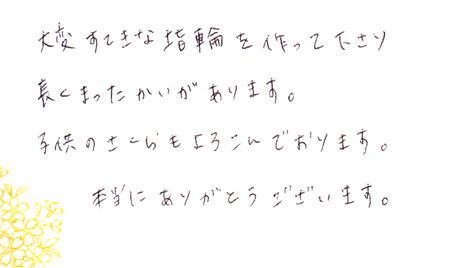 大変すてきな指輪を作って下さり
長くまったかいがあります。
子供のさくらもよろこんでおります。
本当にありがとうございます。